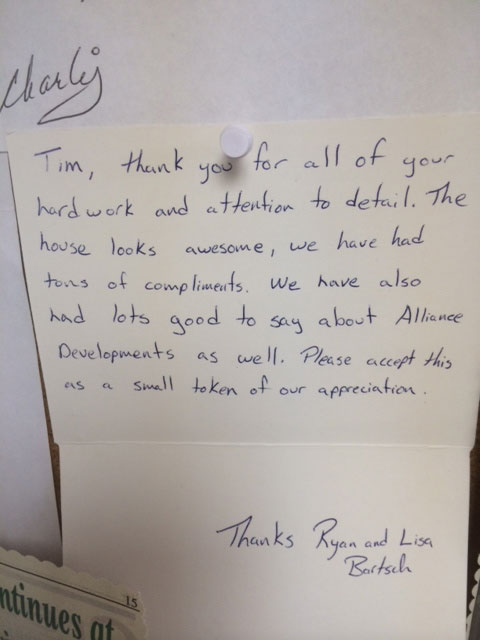 Charlij
Tim, thank you for all of your
hard work and attention to detail. The
house looks awesome, we have had
tons of compliments. We have also
had lots good to say about Alliance
Developments as well. Please accept this
as a small token of our appreciation.
Thanks Ryan and Lisa
Bartsch
15
ntinues at